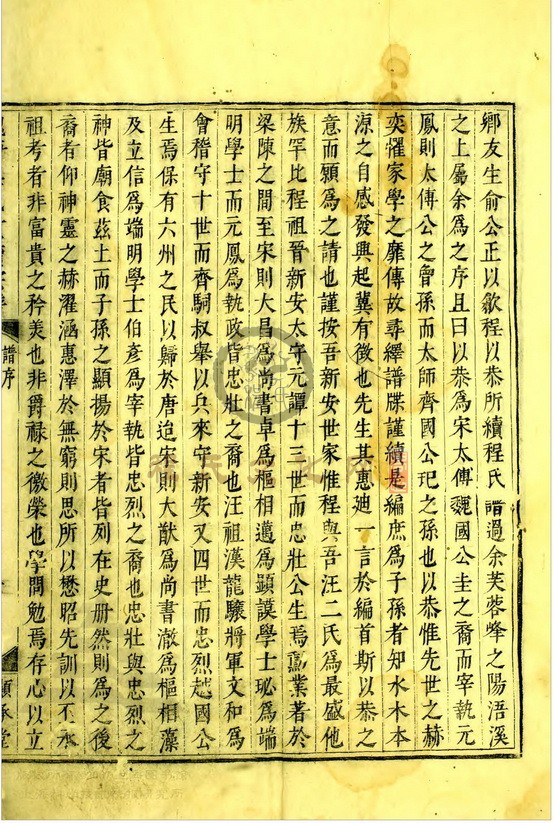 鄉友生俞公正以歙程以恭所續程氏譜過余芙蓉峰之陽浯溪
之上屬余為之序且曰以恭為宋太傅魏國公圭之裔而宰執元
鳳則太傅公之曾孫而太師齊國公玘之孫也以恭惟先世之赫
奕懼家學之靡傳故尋繹譜牒謹續是編庶為子孫者知水木本
源之自感發興起冀有徵也先生其惠廸一言於編首斯以恭之
意而顙為之請也謹按吾新安世家惟程與吾汪二氏為最盛他
族罕比程祖晉新安太守元譚十三世而忠壯公生焉勳業著於
梁陳之間至宋則大昌為尚書卓為樞相邁為顯謨學士珌為端
明學士而元鳳為執政皆忠壯之裔也汪祖漢龍驤將軍文和為
會稽守十世而齊駉叔舉以兵來守新安又四世而忠烈越國公
生焉保有六州之民以歸於唐迨宋則大猷為尚書澈為樞相藻
及立信為端明學士伯彥為宰執皆忠烈之裔也忠壯與忠烈之
神皆廟食茲土而子孫之顯揚於宋者皆列在史册然則為之後
裔者仰神靈之赫濯涵惠澤於無窮則思所以懋昭先訓以丕承
祖考者非富貴之矜美也非爵祿之徽榮也學問勉焉存心以立
譜序